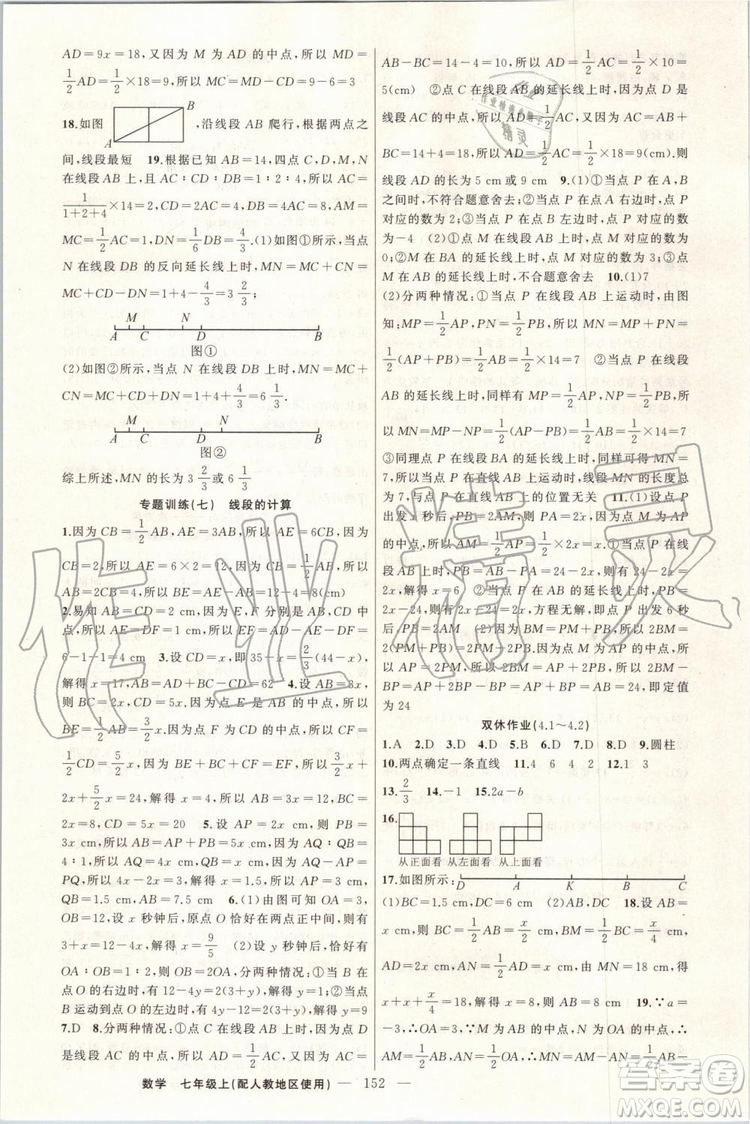 AD=9x=18,又因为 M 为 AD 的中点,所以 MD=
1/2 AD=1/2×18=9,所以 MC=MD-CD=9-6=3
18.如图 ,沿线段 AB 爬行,根据两点之
A
B
间,线段最短 19.根据已知 AB=14,四点 C,D,M,N
在线段 AB 上,且 AC∶CD∶DB=1∶2∶4,所以 AC=
1/(1+2+4)×14=2,CD=4,DB=8,又因为 AM=1/2 AC,所以
MC=1/2 AC=1,DN=1/4 DB=4/3.(1)如图①所示,当点
N 在线段 DB 的反向延长线上时,MN=MC+CD-
DN=1+4-4/3=3 2/3;
A C N D B
图①
(2)如图②所示,当点 N 在线段 DB 上时,MN=
MC+CD+DN=1+4+4/3=6 1/3.
A M C D N B
图②
综上所述,MN 的长为 3 2/3 或 6 1/3
专题训练(七) 线段的计算
1.因为 CB=1/2 AB,AE=3AB,所以 AE=6CB,又因为
CB=2,所以 AE=6×2=12,因为 CB=1/2 AB,所以
AB=2CB=4,所以 BE=AE-AB=12-4=8(cm)
2.易知 AB=CD=2 cm,因为 E,F 分别是 AB,CD 的
中点,所以 AE=DF=1 cm,所以 EF=AD-AE-DF=
6-1-1=4 cm 3.设 CB=x,即 35-x=2/3(44-x),
解得 x=17,AB+CD=62 4.设 AB=3x,
则 BC=2x,CD=5x,因为 E 是 AB 的中点,所以 BE=
3/2 x,因为点 F 为 CD 的中点,所以 CF=1/2 CD=5/2 x,
因为 BE+BC+CF=EF,且 EF=24,所以 3/2 x+
2x+5/2 x=24,解得 x=4,所以 AB=3x=12,BC=
2x=8,CD=5x=20 5.设 AP=2x cm,则 PB=
3x cm,所以 AB=5x cm,因为 AQ∶QB=4∶1,所以
AQ=4x cm,QB=x cm,所以 PQ=PB-QB=
2x cm,因为 PQ=3 cm,所以 2x=3,所以 x=1.5,所以
AB=7.5 cm,因为 AP=2x cm=PQ,所以 AP=
PQ,所以点 P 是 AQ 的中点 6.(1)由图可知 AO=3,
BO=12,设 x 秒钟后,原点 O 恰好在两点正中间,则有
3+x=12-4x,解得 x=9/5 (2)设 y 秒钟后,恰好有
OA∶OB=1∶2,分两种情况:①当 B 在
点O 的右边时,有 12-4y=2(3+y),解得 y=1;②当点
B 运动到点 O 的左边时,有 4y-12=2(3+y),解得 y=9
7.D 8.分两种情况:①当点 C 在线段 AB 上时,AC=
AB-BC=14-4=10,所以 AD=1/2 AC=1/2×10=
5(cm) ②当点 C 在线段 AB 的延长线上时,因为点 D 是
线段 AC 的中点,所以 AD=1/2 AC,因为 AC=
AB+BC=14+4=18,所以 AD=1/2×18=9(cm),则
线段 AD 的长为 5 cm 或 9 cm 9.(1)①点 P 在 A,B
之间时,不符合题意舍去;②当点 P 在点 A 右边时,点 P
对应的数为 2;③当点 P 在点 B 左边时,点 P 对应的数
为-4 (2)①当点 M 在 AB 之间时,点 M 对应的数为
0;②当点 M 在 BA 的延长线上时,点 M 对应的数为3;③
点 M 在 AB 的延长线上时,不合题意舍去 10.(1)7
(2)分两种情况:①当点 P 在线段 AB 上运动时,由图
知:MP=1/2 AP,PN=1/2 PB,所以 MN=MP+PN=
1/2(AP+PB)=1/2 AB=1/2×14=7 ②当点 P 在线段
AB 的延长线上时,同样有 MP=1/2 AP,NP=1/2 PB,所
以 MN=MP-NP=1/2(AP-PB)=1/2 AB=1/2×14=7
③同理点 P 在线段 BA 的延长线上时,同样可得 MN=
7,所以当点 P 在直线 AB 上运动时,线段 MN 的长度总
为 7,与点 P 在直线 AB 上的位置无关 11.(1)设点 P
出发 x 秒后,PB=2AM,当点 P 在点 B 左边时,因为 M 为 AP
的中点,所以 AM=1/2 AP=1/2×2x=x,因为 AB=24,
PA=2x,所以 PB=AB-PA=24-2x,则有 24-2x=
2x,解得 x=6 ②当点 P 在点 B 右边时,PB=
2x-24,AM=x,所以 2x-24=2x,方程无解,即出发 6 秒
后 PB=2AM (2)因为 BM=PM+PB,所以 2BM=
2PM+2PB,因为 2PM=AP,所以 2BM=AP+2PB,
所以 2BM-BP=AP+2PB-BP=AP+BP,即定值
为 24
双休作业(4.1~4.2)
1.A 2.D 3.D 4.C 5.C 6.D 7.B 8.D 9.圆柱
10.两点确定一条直线 11.4 6 4 2 12.1 3
13.2/3 14.-1 15.2a-b
16.
从正面看 从左面看 从上面看
17.如图所示:
D A K B C
(1)BC=2 cm,DC=6 cm (2)AB,AC 18.设 AB=
x cm,则 BC=1/2 AB=x/2 cm,CD=1/2 BC=x/4 cm,
AD=2AB=2x cm,因为 AD+AB+CD=18,所以
x+x+x/4=18,解得 x=8,所以 AB=8 cm 19.∵a=
-3,∴OA=3,∵M 为 AB 的中点,N 为 OA 的中点,∴
AM=1/2 AB,AN=1/2 OA,∴MN=AM-AN=1/2 AB-
数学 七年级上(配人教地区使用) — 152 —
作业精灵
答案圈
MXQE.COM